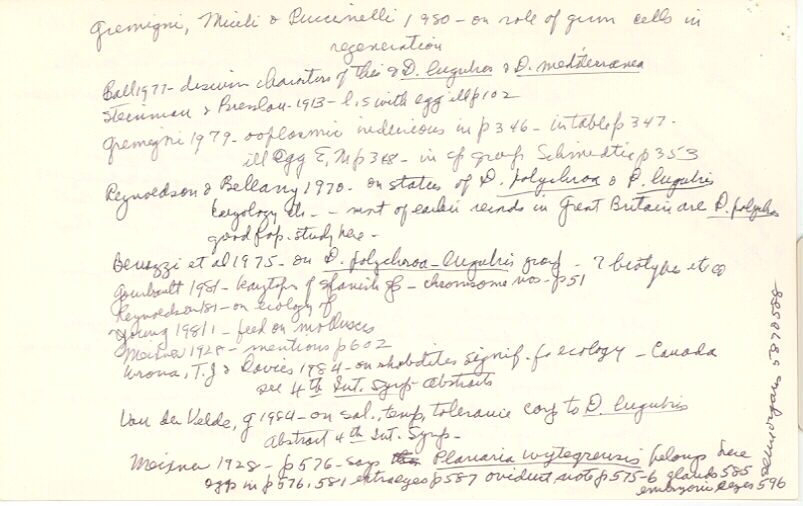 Gremigni, Miceli & Puccinelli 1980 - on role of germ cells in
regeneration
Ball 1977 - discusses characters of this & D. lugubris & D. mediterranea
Steinmann & Bresslau - 1913 - l.s with egg ill p 102
Gremigni 1979 - ooplasmic inclusions in p 346 - in table p 347 -
ill egg E, M p 348 - in cf group Schmidtea p 353
Reynoldson & Bellamy 1970 - on status of D. polychroa & D. lugubris
karyology etc - - most of earlier records in Great Britain are D. polychroa
good pop. study here -
Benazzi et al 1975 - on D. polychroa - lugubris group - 7 biotypes etc
Gourbault 1981 - karyotype of Spanish - chromosome nos - p 51
Reynoldson '81 - on ecology of
Young 1981 - feed on molluscs
Meixner 1928 - mentions p 602
Wrona, T.J & Davies 1984 - on rhabdites signif. for ecology - Canada
see 4th Int. Symp - abstracts
Van der Velde, G 1984 - on sal., temp, tolerance comp to D. lugubris
Abstract 4th Int. Symp -
Meixner 1928 - p 576 - says Planaria wytegrensis belongs here
eggs in p 576, 581 extra eyes p 587 oviduct, note p 575-6 glands 585
embryonic eyes 596
organs 587 & 588